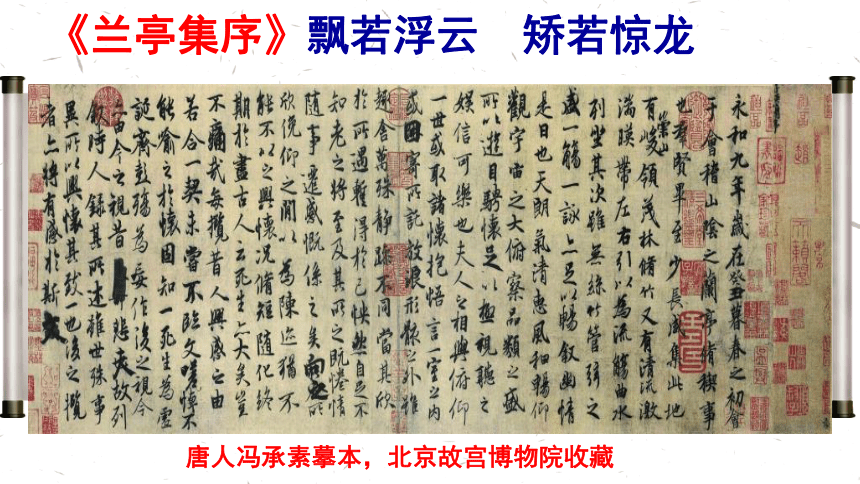 《兰亭集序》飘若浮云 矫若惊龙
永和九年歲在癸丑暮春之初會
于會稽山陰之蘭亭脩稧事
也群賢畢至少長咸集此地
有崇山峻領茂林脩竹又有清流激
湍暎帶左右引以為流觴曲水
列坐其次雖無絲竹管弦之
盛一觴一詠亦足以暢敘幽情
是日也天朗氣清惠風和暢仰
觀宇宙之大俯察品類之盛
所以遊目騁懷足以極視聽之
娛信可樂也夫人之相與俯仰
一世或取諸懷抱悟言一室之內
或因寄所託放浪形骸之外雖
趣舍萬殊靜躁不同當其欣
於所遇暫得於己怏然自足不
知老之將至及其所之既惓情
隨事遷感慨係之矣向之所
欣俛仰之間以為陳迹猶不
能不以之興懷況脩短隨化終
期於盡古人云死生亦大矣豈
不痛哉每攬昔人興感之由
若合一契未嘗不臨文嗟悼不
能喻之於懷固知一死生為虛
誕齊彭殤為妄作後之視今
亦由今之視昔悲夫故列
敘時人錄其所述雖世殊事
異所以興懷其致一也後之攬
者亦將有感於斯文
唐人冯承素摹本，北京故宫博物院收藏